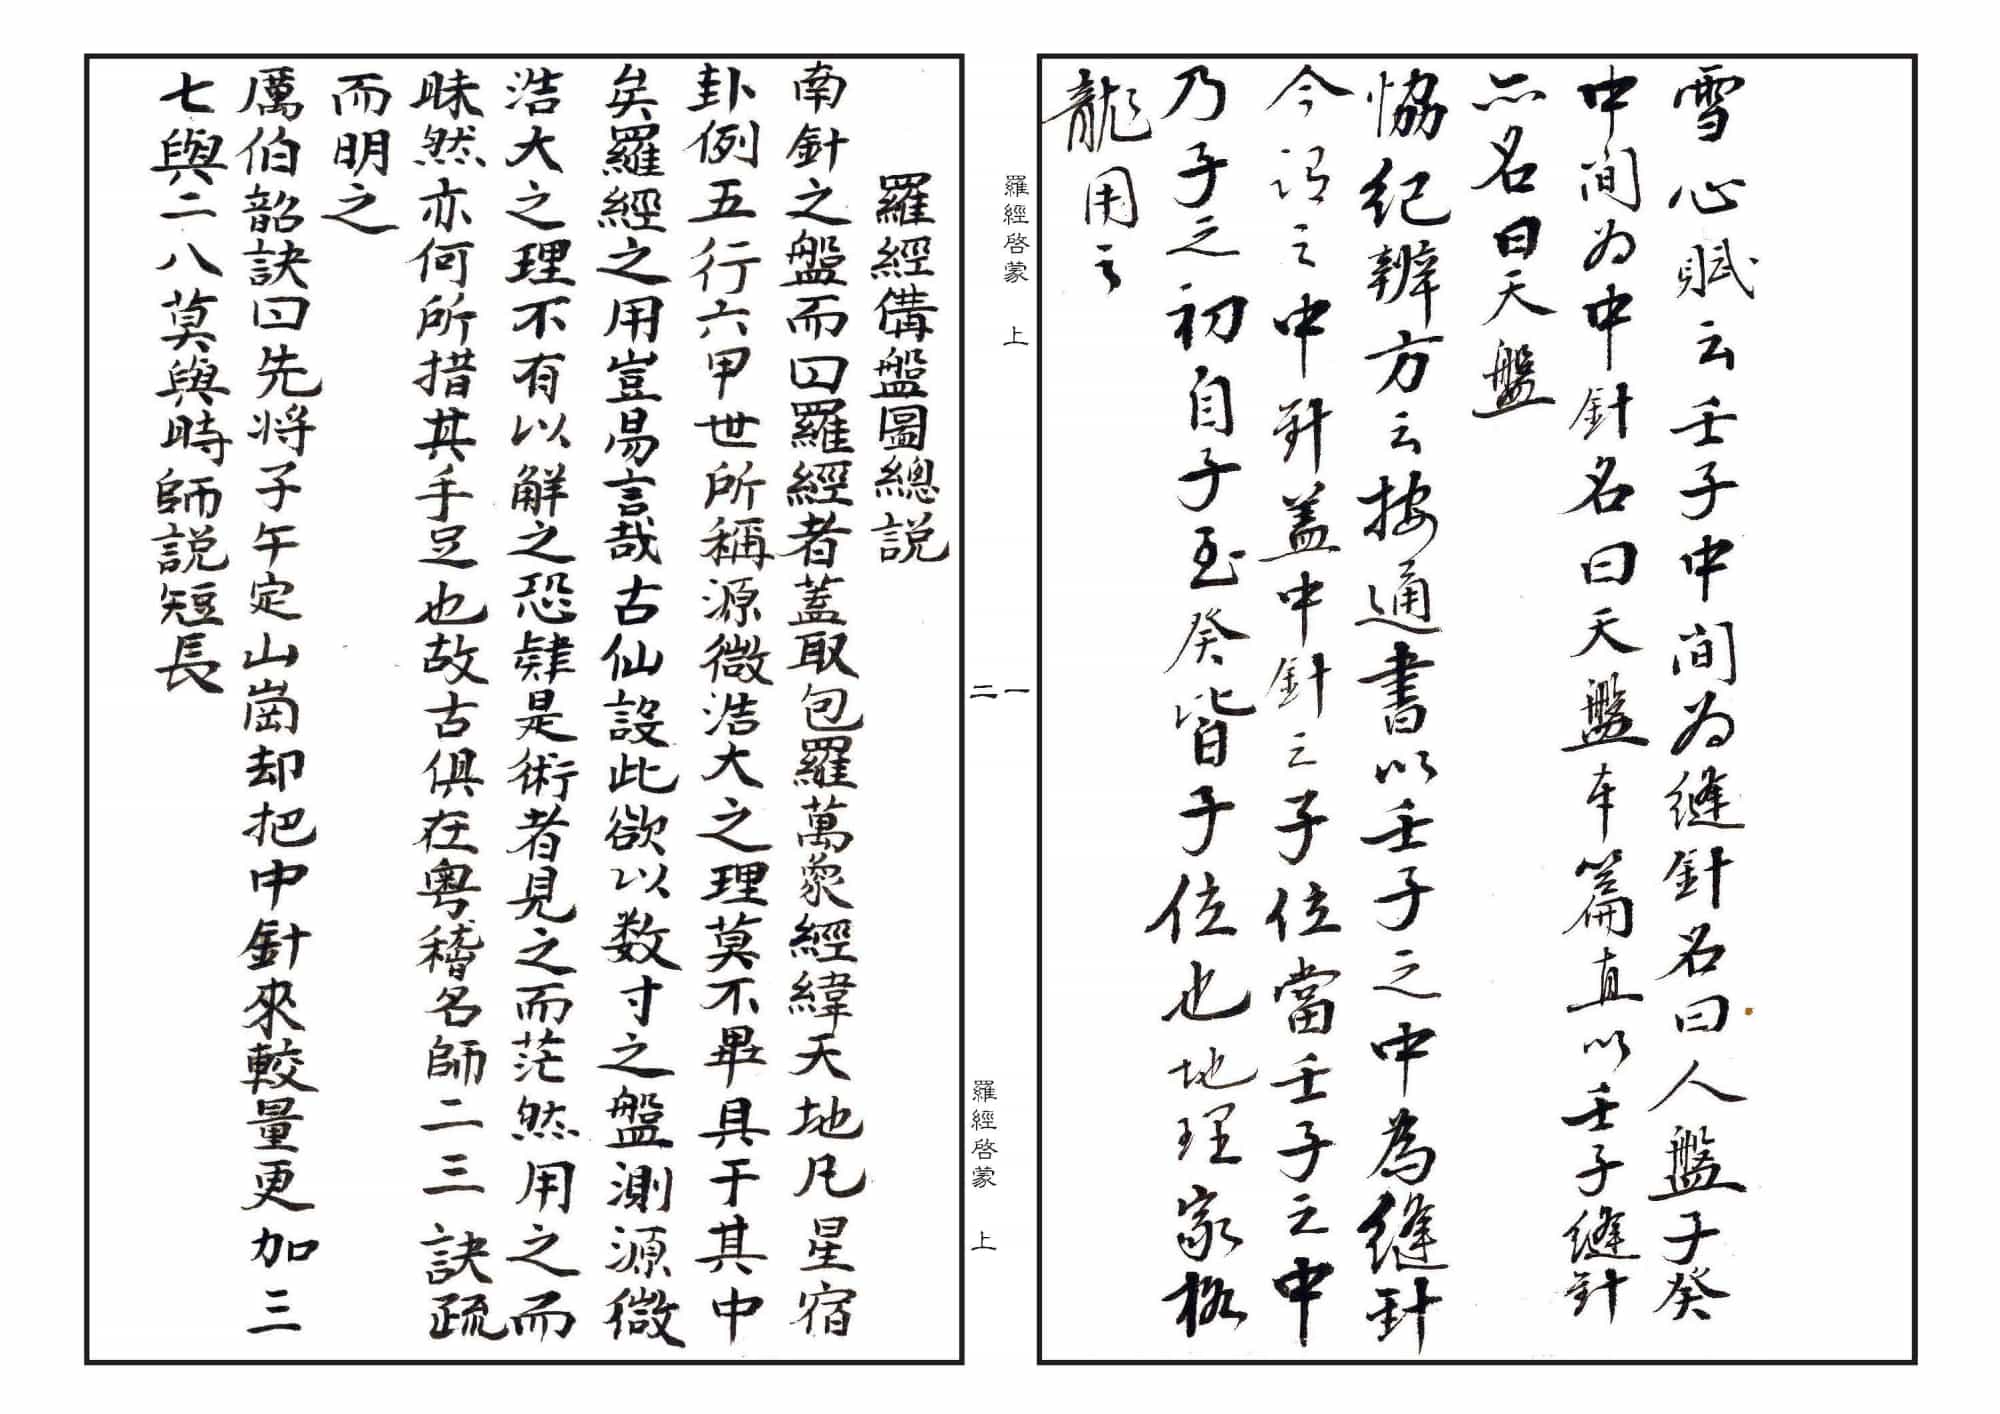 雪心賦云壬子中间为縫針名曰人盤子癸
中间为中針名曰天盤本篇直以壬子縫針
名曰天盤
恊紀辨方云按通書以壬子之中為縫針
今謂之中針盖中針之子位當壬子之中
乃子之初自子至癸皆子位也地理家格
龍用之
羅經啓蒙 上
一
二
羅經啓蒙 上
羅經備盤圖總説
南針之盤而曰羅經者蓋取包羅萬象經緯天地凡星宿
卦例五行六甲世所稱源微浩大之理莫不畢具于其中
矣羅經之用豈易言哉古仙設此欲以数寸之盤測源微
浩大之理不有以解之恐肄是術者見之而茫然用之而
昧然亦何所措其手足也故古俱在粵稽名師二三訣疏
而明之
厲伯韶訣曰先将子午定山崗却把中針來較量更加三
七與二八莫與時師説短長